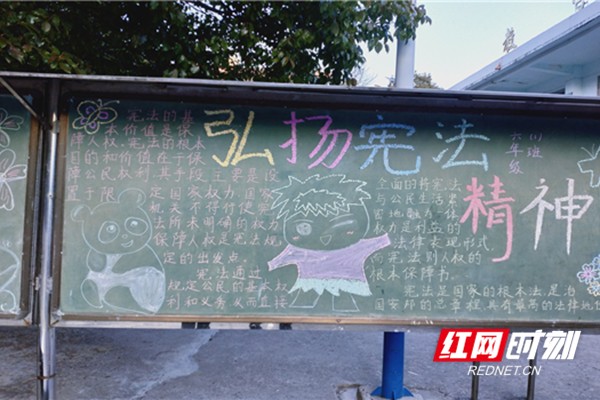 弘扬宪法
精神
六年级
四班
宪法的基
本价值是保
障人权。宪法的根本
目的和价值在于保
障公民权利，其手段主要是设
置于限定国家权力。国家
机关不得行使宪
法所未明确的权力
保障人权是宪法规
定的出发点。
宪法通过
规定公民的基本权
利和义务，从而直接
全面的将宪法
与公民生活紧
密地融为一体
权力是利益的
法律表现形式
而宪法则人权的
根本保障书。
宪法是国家的根本法，是治
国安邦的总章程，具有最高的法律地位
红网时刻
REDNET.CN